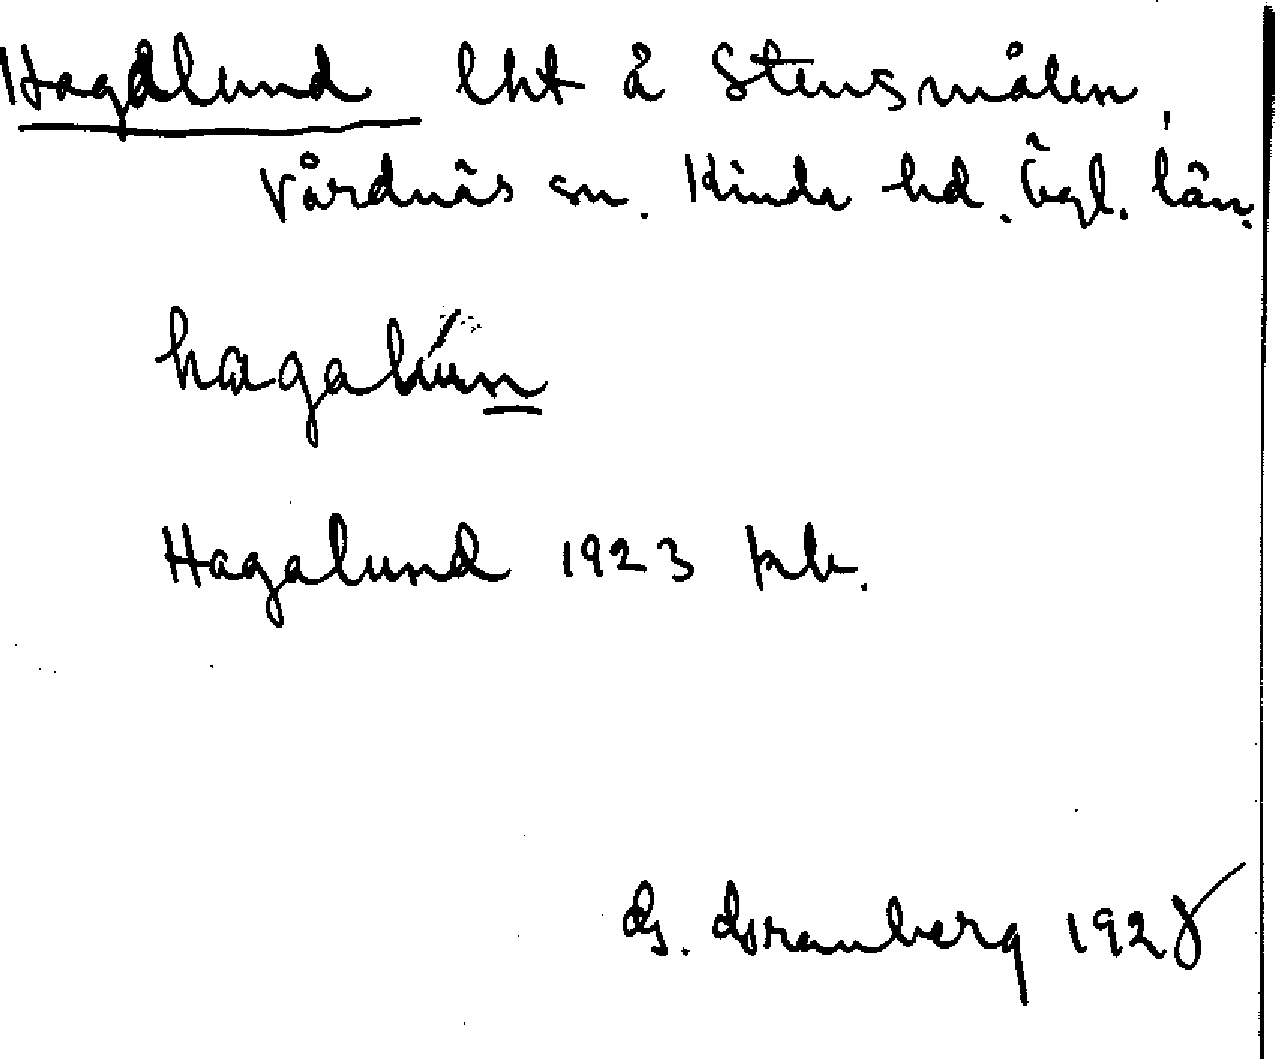 Hagalund lht å Stensmålen,
Vårdnäs sn. Kinda hd. Ögl. län.
hagalún
Hagalund 1923 kb.
G. Granberg 1928